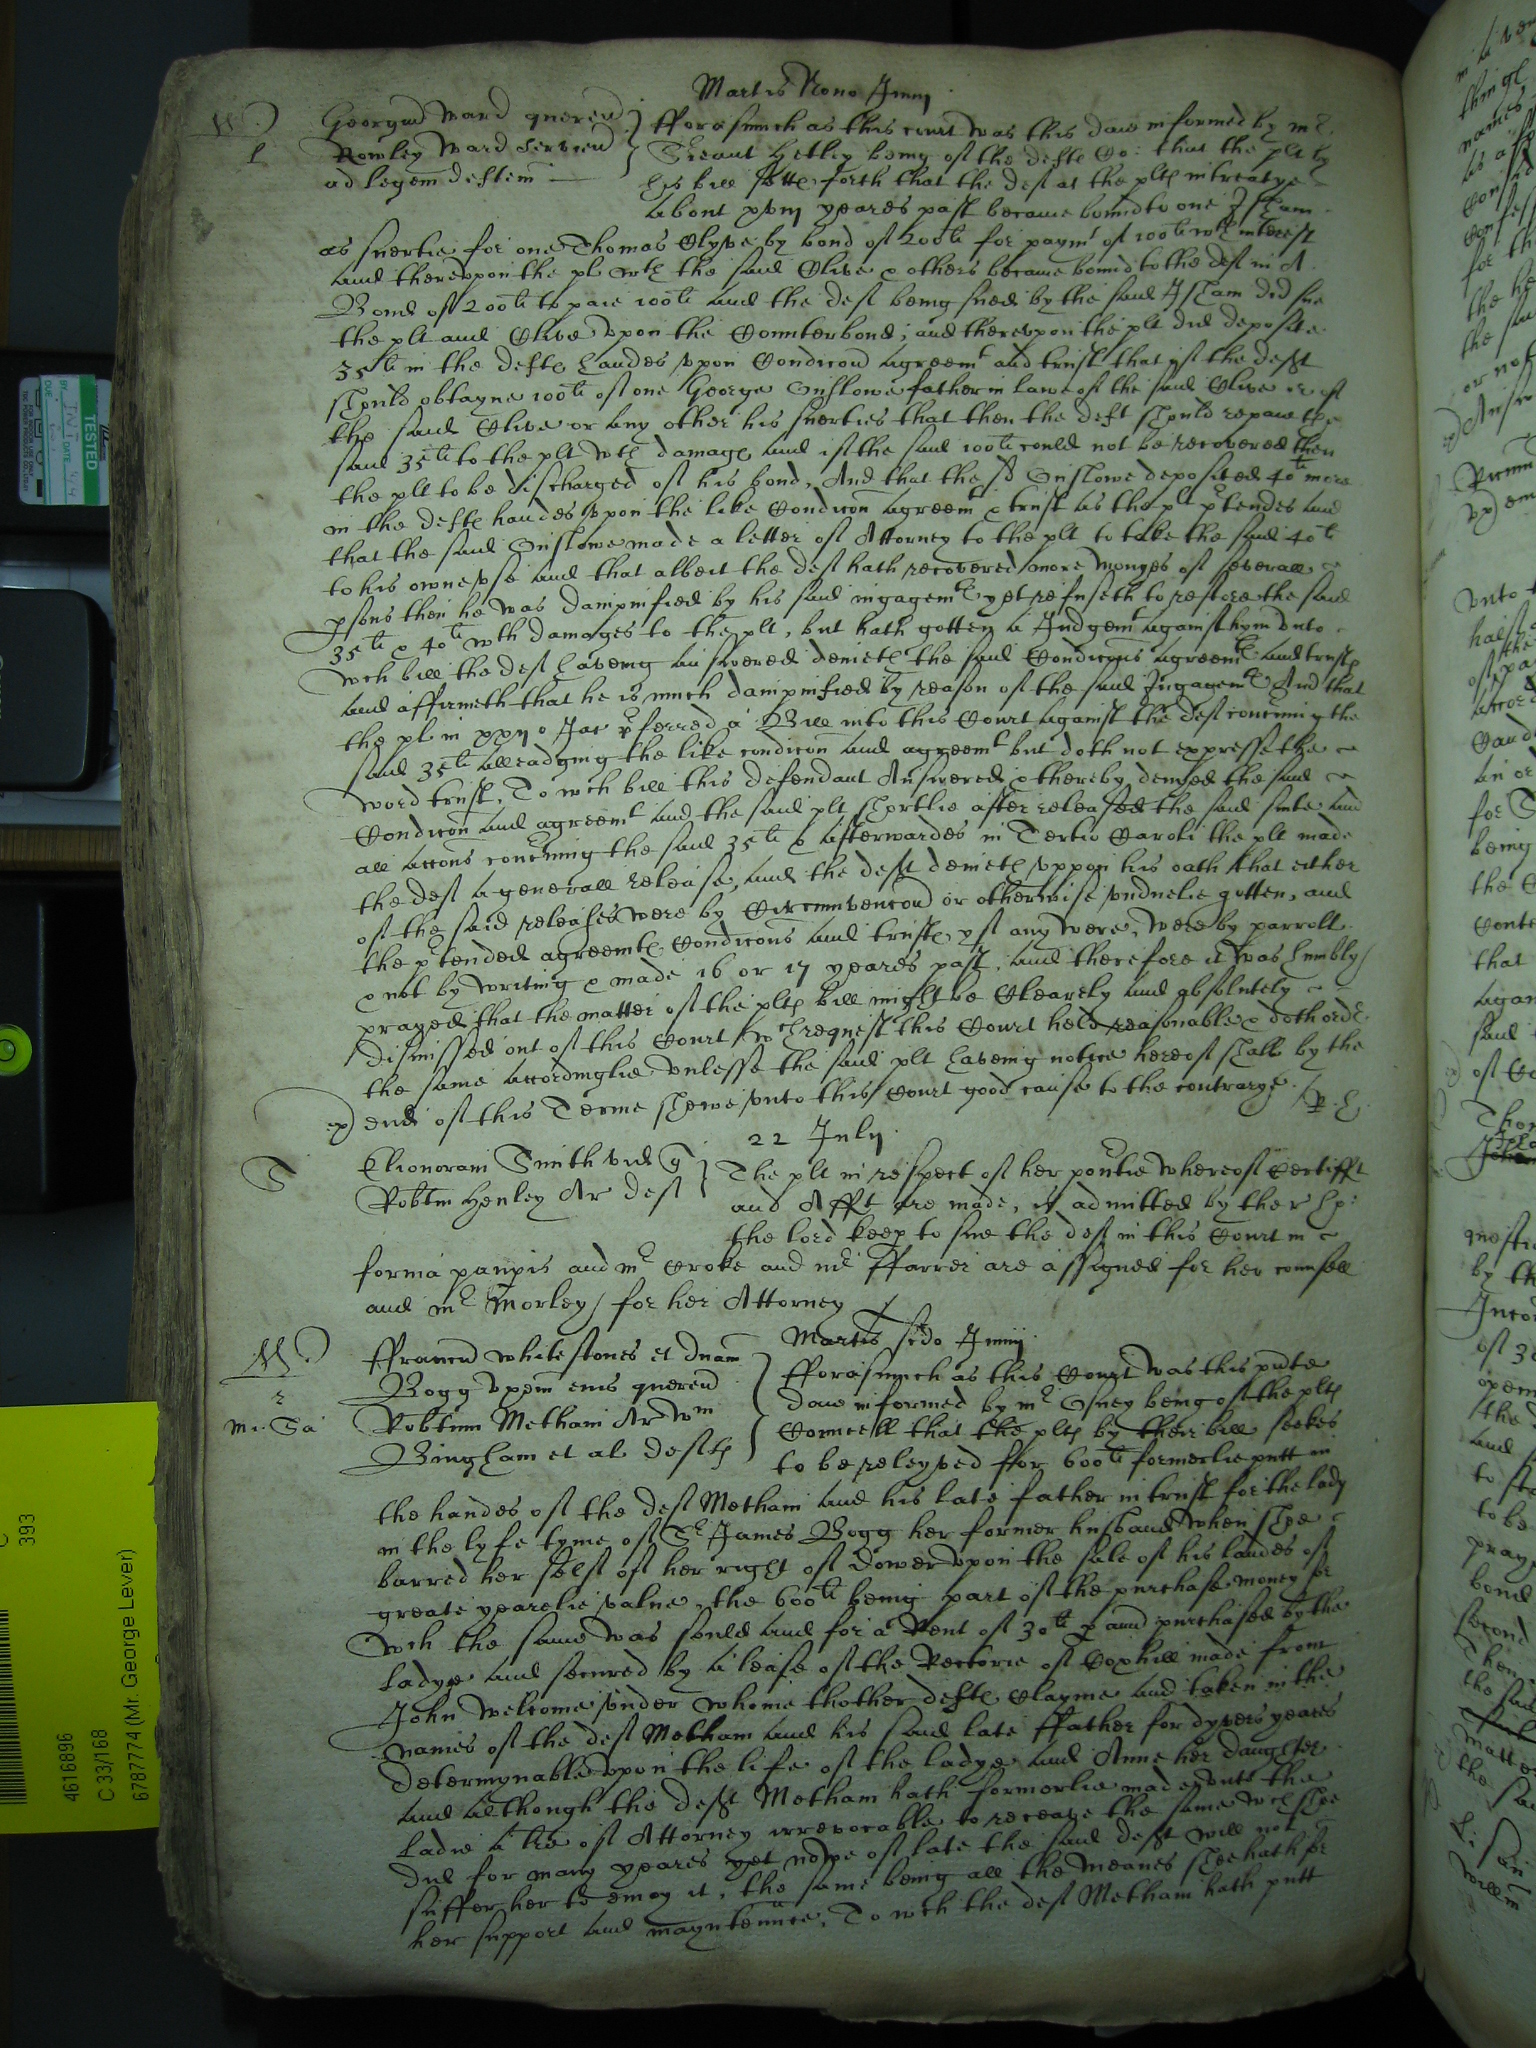 Martis Nono Junij
W
Georgius Ward queren
Rowley Ward servien
ad legem deften
fforasmuch as this court was this daie informed by mr
Sreant Hetley being of the deftes Co: that the plt by
his bill setteth forth that the deft at the pltes intreatye
about xviij yeares past became bound to one Isham
as suertie for one Thomas Clyve by bond of 200li for paymt of 100li wth interest
and therevpon the plt wth the said Clive & others became bound to the deft in A
Bond of 200li to paie 100li and the deft being sued by the said Isham did sue
the plt and Clive vpon the Counterbond; and therevpon the plt did deposite
35li in the deftes handes vpon Condicon agreemt and trust that yf the deft
should obtayne 100li of one George Onslowe father in lawe of the said Clive or of
the said Clive or any other his suerties that then the deft should repaie the
said 35li to the plt wth damages and if the said 100li could not be recovered then
the plt to be discharged of his bond, And that the sd Onslowe deposited 40li more
in the deftes handes vpon the like Condicon agreemt & trust as the plt ptendes and
that the said Onslowe made a letter of Attorney to the plt to take the said 40li
to his owne vse and that albeit the deft hath recovered more monyes of severall
psons then he was dampnified by his said ingagemte yet refuseth to restore the said
35li & 40li wth damages to the plt, but hath gotten a Judgemt against hym vnto
wch bill the deft haveing answered denieth the said Condicons agreemte and truste
and affirmeth that he is much dampnified by reason of the said Ingagemte And that
the plt in xxijo Jac pferred a Bill into this Court against the deft concerning the
said 35li alleadging the like condicon and agreemt but doth not expresse the
word trust, To wch bill this defendant Answered & thereby denyed the said
Condicon and agreemt and the said plt shortlie after released the said suite and
all accons concerning the said 35li & afterwardes in Tertio Caroli the plt made
the deft a generall release, and the deft denieth vppon his oath that either
of the said releases were by Circumvencon or otherwise vnduelie gotten, and
the ptended agreemte Condicons and truste yf any were, were by parroll
& not by writing & made 16 or 17 yeares past, and therefore it was humbly
prayed that the matter of the pltes bill might be Clearely and absolutely
dismissed out of this Court wch request this Court held reasonable & doth order
the same accordinglie vnlesse the said plt haveing notice hereof shall by the
end of this Terme shewe vnto this Court good cause to the contrarye
22 July
S
Elionoram Smith vid q
Robtm Henley Ar deft
The plt in respect of her povtie whereof Certifft
and Afft are made, is admitted by the r Lp:
the lord keep to sue the deft in this Court in
forma paupis and mr Croke and mr ffarrer are assigned for her counsell
and mr Morley for her Attorney
Martis scdo Junij
W
2
ffrancu Whitestones et dnam
Bogg vxem eius queren
Robtum Metham Ar Wm
Bingham et al deftes
fforasmuch as this Court was this pnte
daie informed by mr Osney being of the pltes
Councell that the pltes by their bill seekes
to be releyved ffor 600li formerlie putt in
the handes of the deft Metham and his late father in trust for the lady
in the lyfe tyme of Sr James Bogg her former husband when shee
barred her selfe of her right of Dower vpon the sale of his landes of
greate yearelie value, the 600li being part of the purchase money for
wch the same was sould and for a Rent of 30li p ann purchased by the
Ladye and secured by a lease of the Rectorie of Coxhill made from
John Welcome vnder whome thother deftes clayme and taken in the
names of the deft Metham and his said late ffather for dyvers yeares
determynable vpon the life of the ladye and Anne her daughter
and although the deft Metham hath formerlie made vnto the
Ladie a lre of Attorney irrevocable to receave the same wch shee
did for many yeares yet nowe of late the said deft will not
suffer her to enioy it, the same being all the meanes shee hath for
her support and mayntennce, To wch the deft Metham hath putt
TESTED
393
4616896
C 33/168
6787774 (Mr. George Lever)